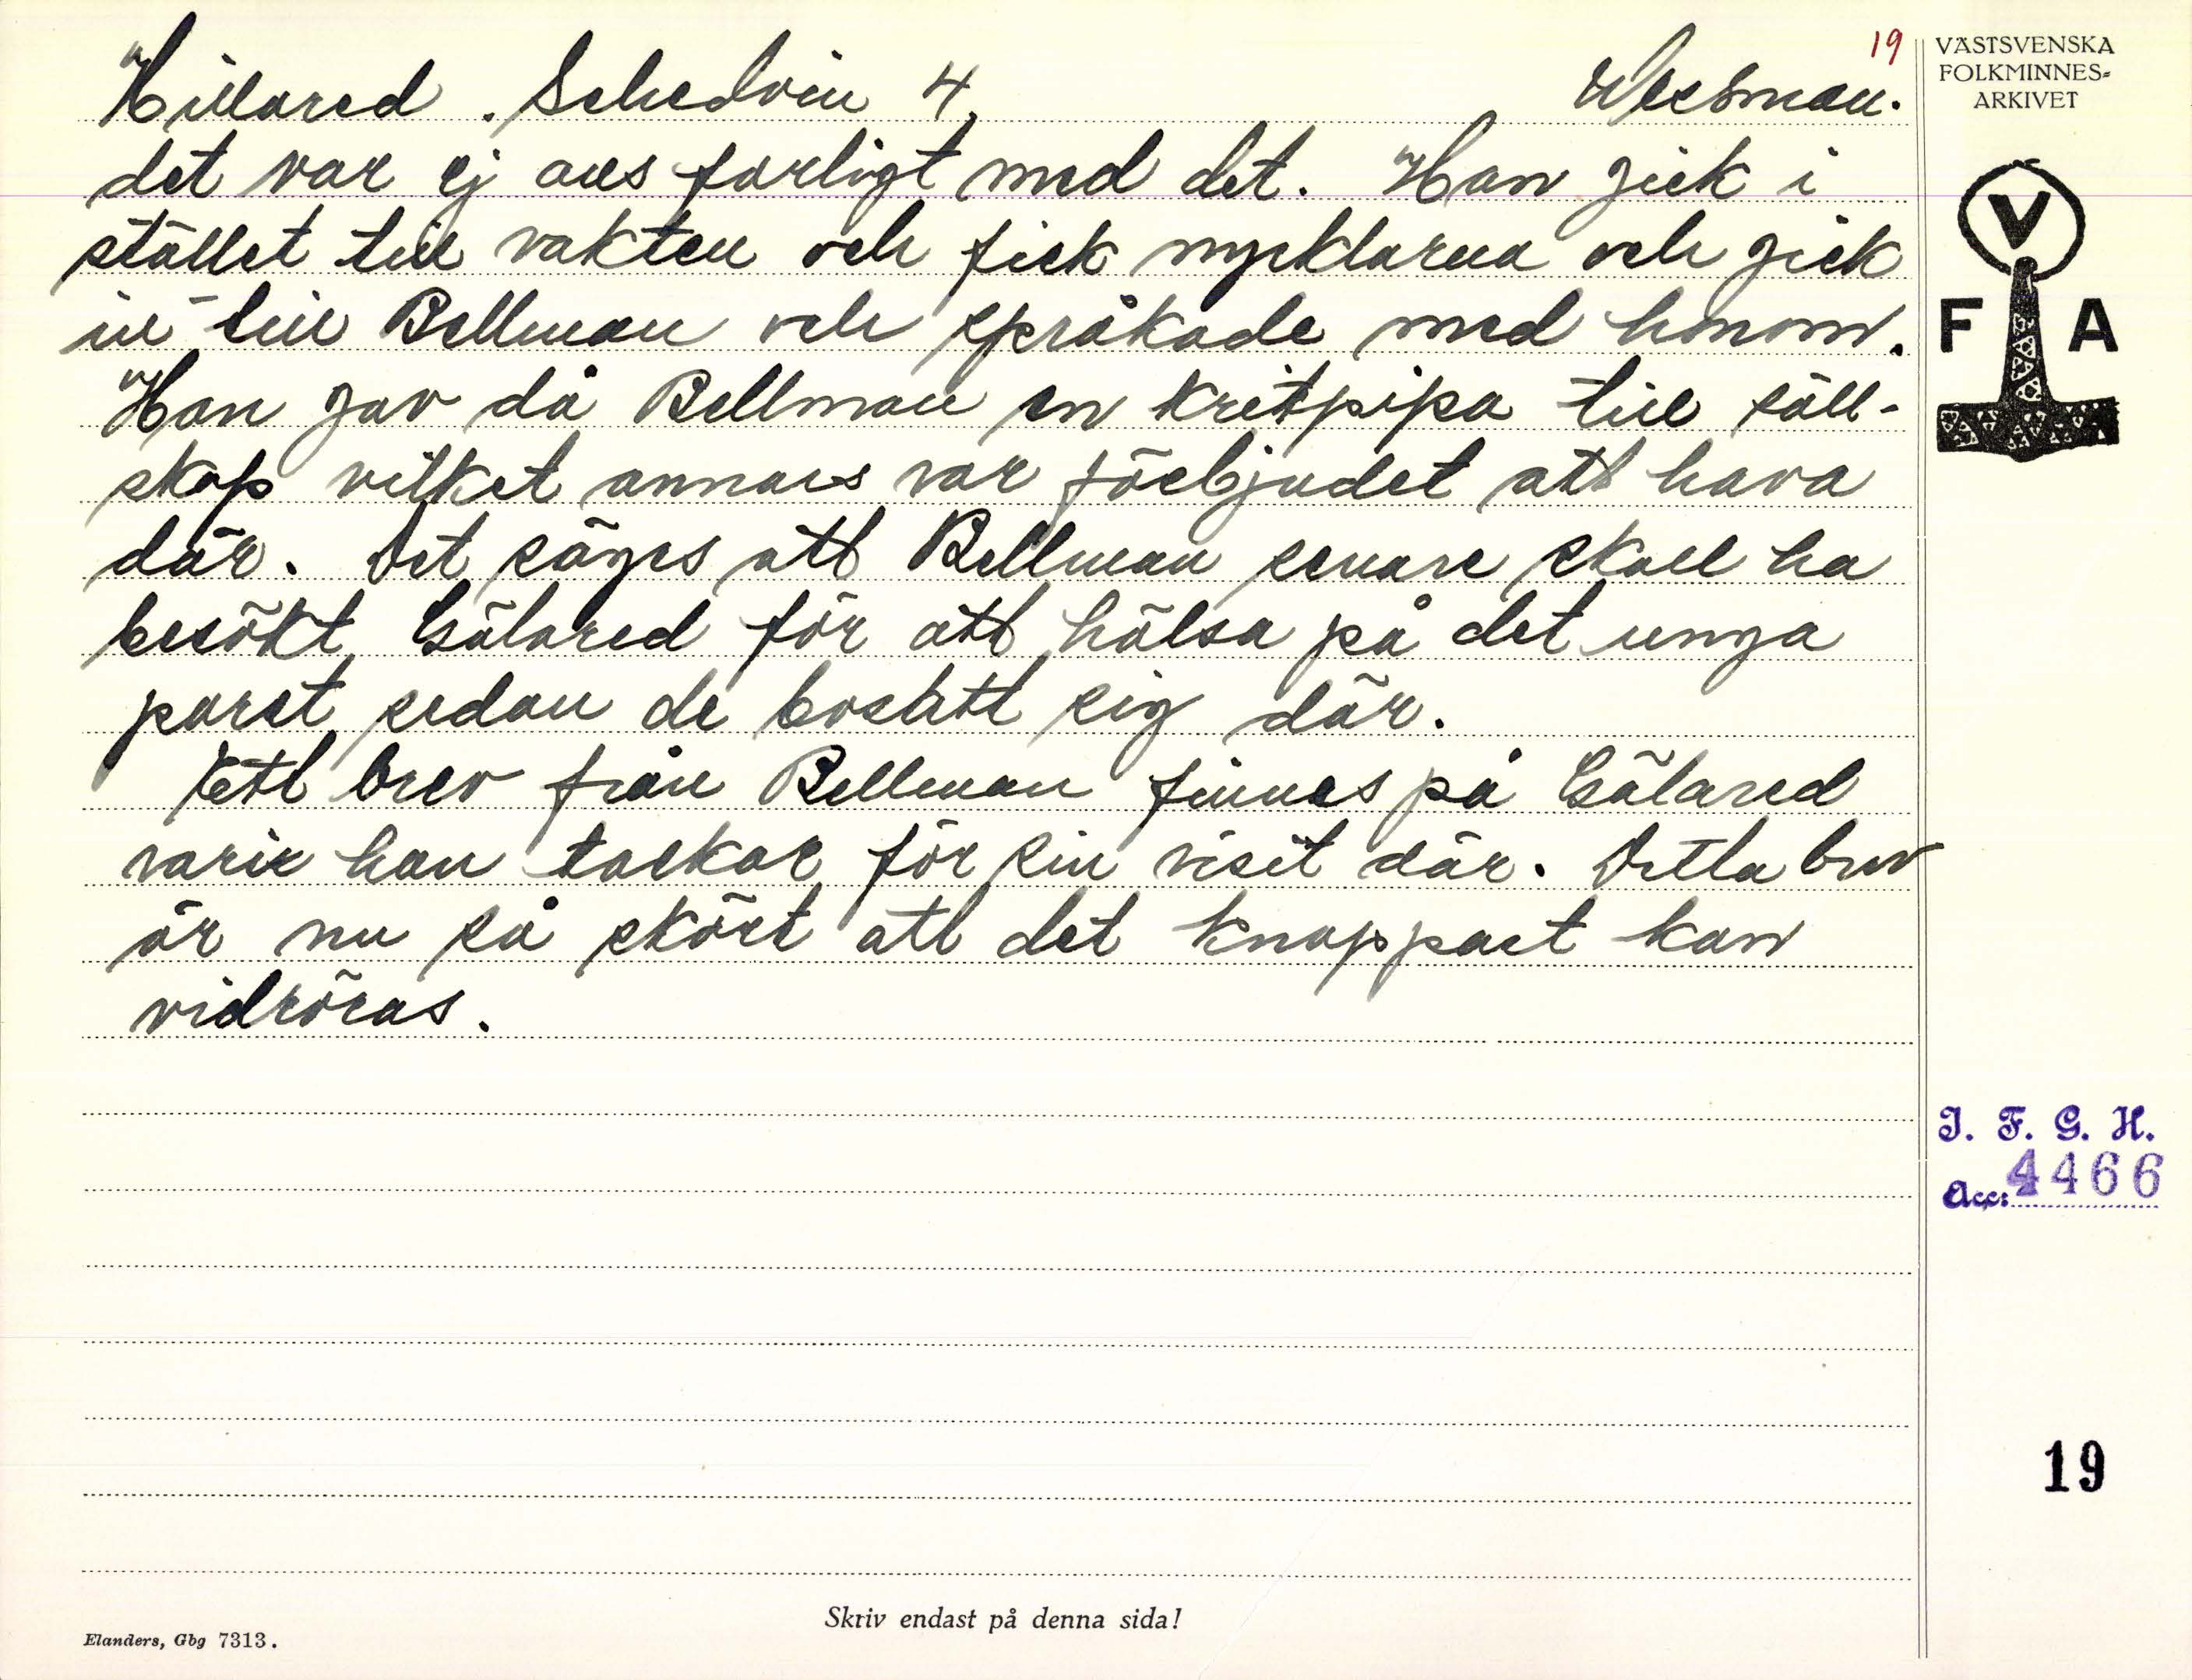 Hillared. Schedvin 4.
19
det var ej alls farligt med det. Han gick i
stället till vakten och fick nycklarna och gick
in till Bellman och språkade med honom.
Han gav då Bellman en kritpipa till säll-
skap vilket annars var förbjudet att hava
där. Det säges att Bellman senare skall ha
besökt Gälared för att hälsa på det unga
paret sedan de bosatt sig där.
Ett brev från Bellman finnes på Gälared
vari han tackar för sin visit där. Detta brev
är nu så skört att det knappast kan
vidröras.
VÄSTSVENSKA
FOLKMINNES-
ARKIVET
V
F A
I. F. G. H.
Acc: 4466
19
Skriv endast på denna sida!
Elanders, Gbg 7313.